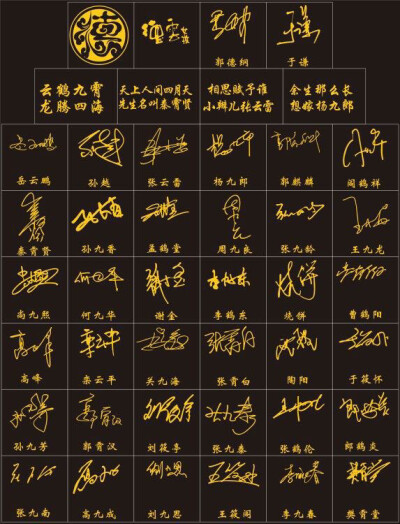 德
德雲社
郭德纲 于谦
云鹤九霄 天上人间四月天 相思赋予谁 余生那么长
龙腾四海 先生名叫秦霄贤 小辫儿张云雷 想嫁杨九郎
岳云鹏 孙越 张云雷 杨九郎 郭麒麟 阎鹤祥
秦霄贤 孙九香 孟鹤堂 周九良 张九龄 王九龙
尚九熙 何九华 谢金 李鹤东 烧饼 曹鹤阳
高峰 栾云平 关九海 张霄白 陶阳 于筱怀
孙九芳 郭霄汉 刘筱亭 张九泰 张鹤伦 郎鹤炎
张九南 高九成 刘九思 王筱阁 李九春 樊霄堂